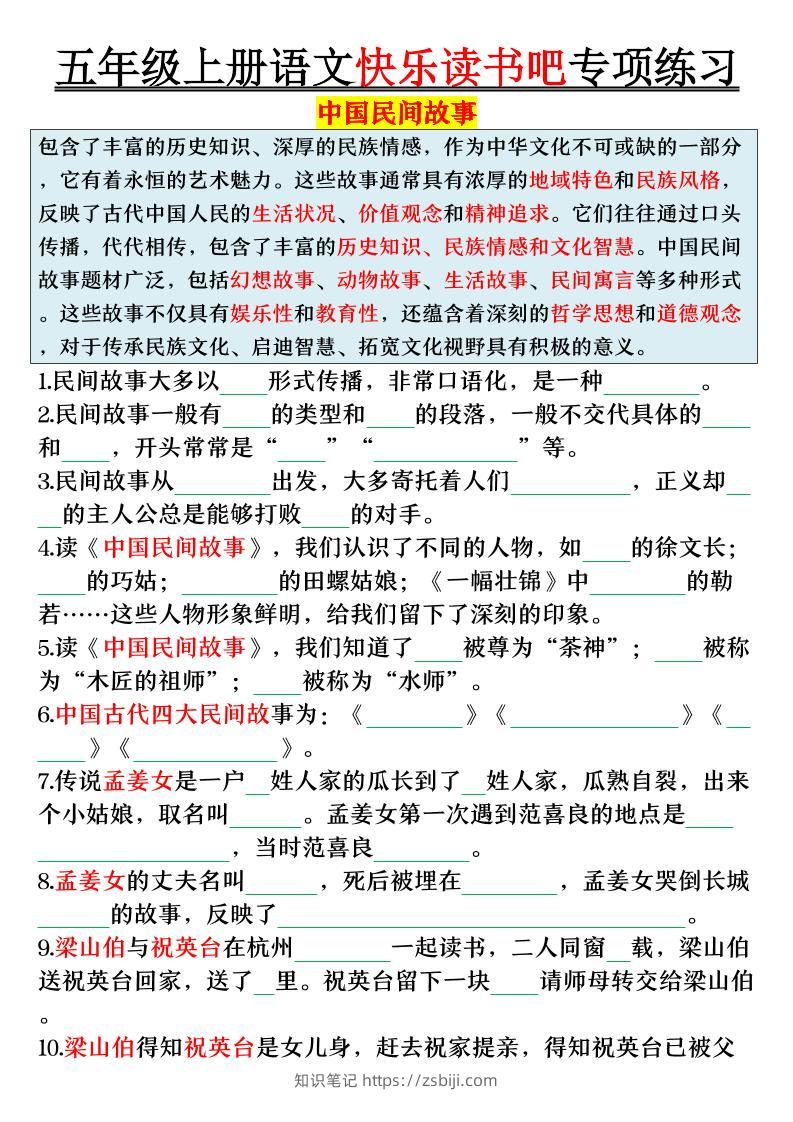 五年级上册语文快乐读书吧专项练习
中国民间故事
包含了丰富的历史知识、深厚的民族情感，作为中华文化不可或缺的一部分
，它有着永恒的艺术魅力。这些故事通常具有浓厚的地域特色和民族风格，
反映了古代中国人民的生活状况、价值观念和精神追求。它们往往通过口头
传播，代代相传，包含了丰富的历史知识、民族情感和文化智慧。中国民间
故事题材广泛，包括幻想故事、动物故事、生活故事、民间寓言等多种形式
。这些故事不仅具有娱乐性和教育性，还蕴含着深刻的哲学思想和道德观念
，对于传承民族文化、启迪智慧、拓宽文化视野具有积极的意义。
1.民间故事大多以____形式传播，非常口语化，是一种________。
2.民间故事一般有____的类型和____的段落，一般不交代具体的____
和____，开头常常是“____”“____________”等。
3.民间故事从________出发，大多寄托着人们__________，正义却__
__的主人公总是能够打败____的对手。
4.读《中国民间故事》，我们认识了不同的人物，如____的徐文长；
____的巧姑；________的田螺姑娘；《一幅壮锦》中________的勒
若……这些人物形象鲜明，给我们留下了深刻的印象。
5.读《中国民间故事》，我们知道了____被尊为“茶神”；____被称
为“木匠的祖师”；____被称为“水师”。
6.中国古代四大民间故事为：《________》《______________》《__
____》《____________》。
7.传说孟姜女是一户__姓人家的瓜长到了__姓人家，瓜熟自裂，出来
个小姑娘，取名叫______。孟姜女第一次遇到范喜良的地点是____
________________，当时范喜良________。
8.孟姜女的丈夫名叫______，死后被埋在________，孟姜女哭倒长城
______的故事，反映了__________________________________。
9.梁山伯与祝英台在杭州________一起读书，二人同窗__载，梁山伯
送祝英台回家，送了__里。祝英台留下一块____请师母转交给梁山伯
。
10.梁山伯得知祝英台是女儿身，赶去祝家提亲，得知祝英台已被父
知识笔记 https://zsbiji.com